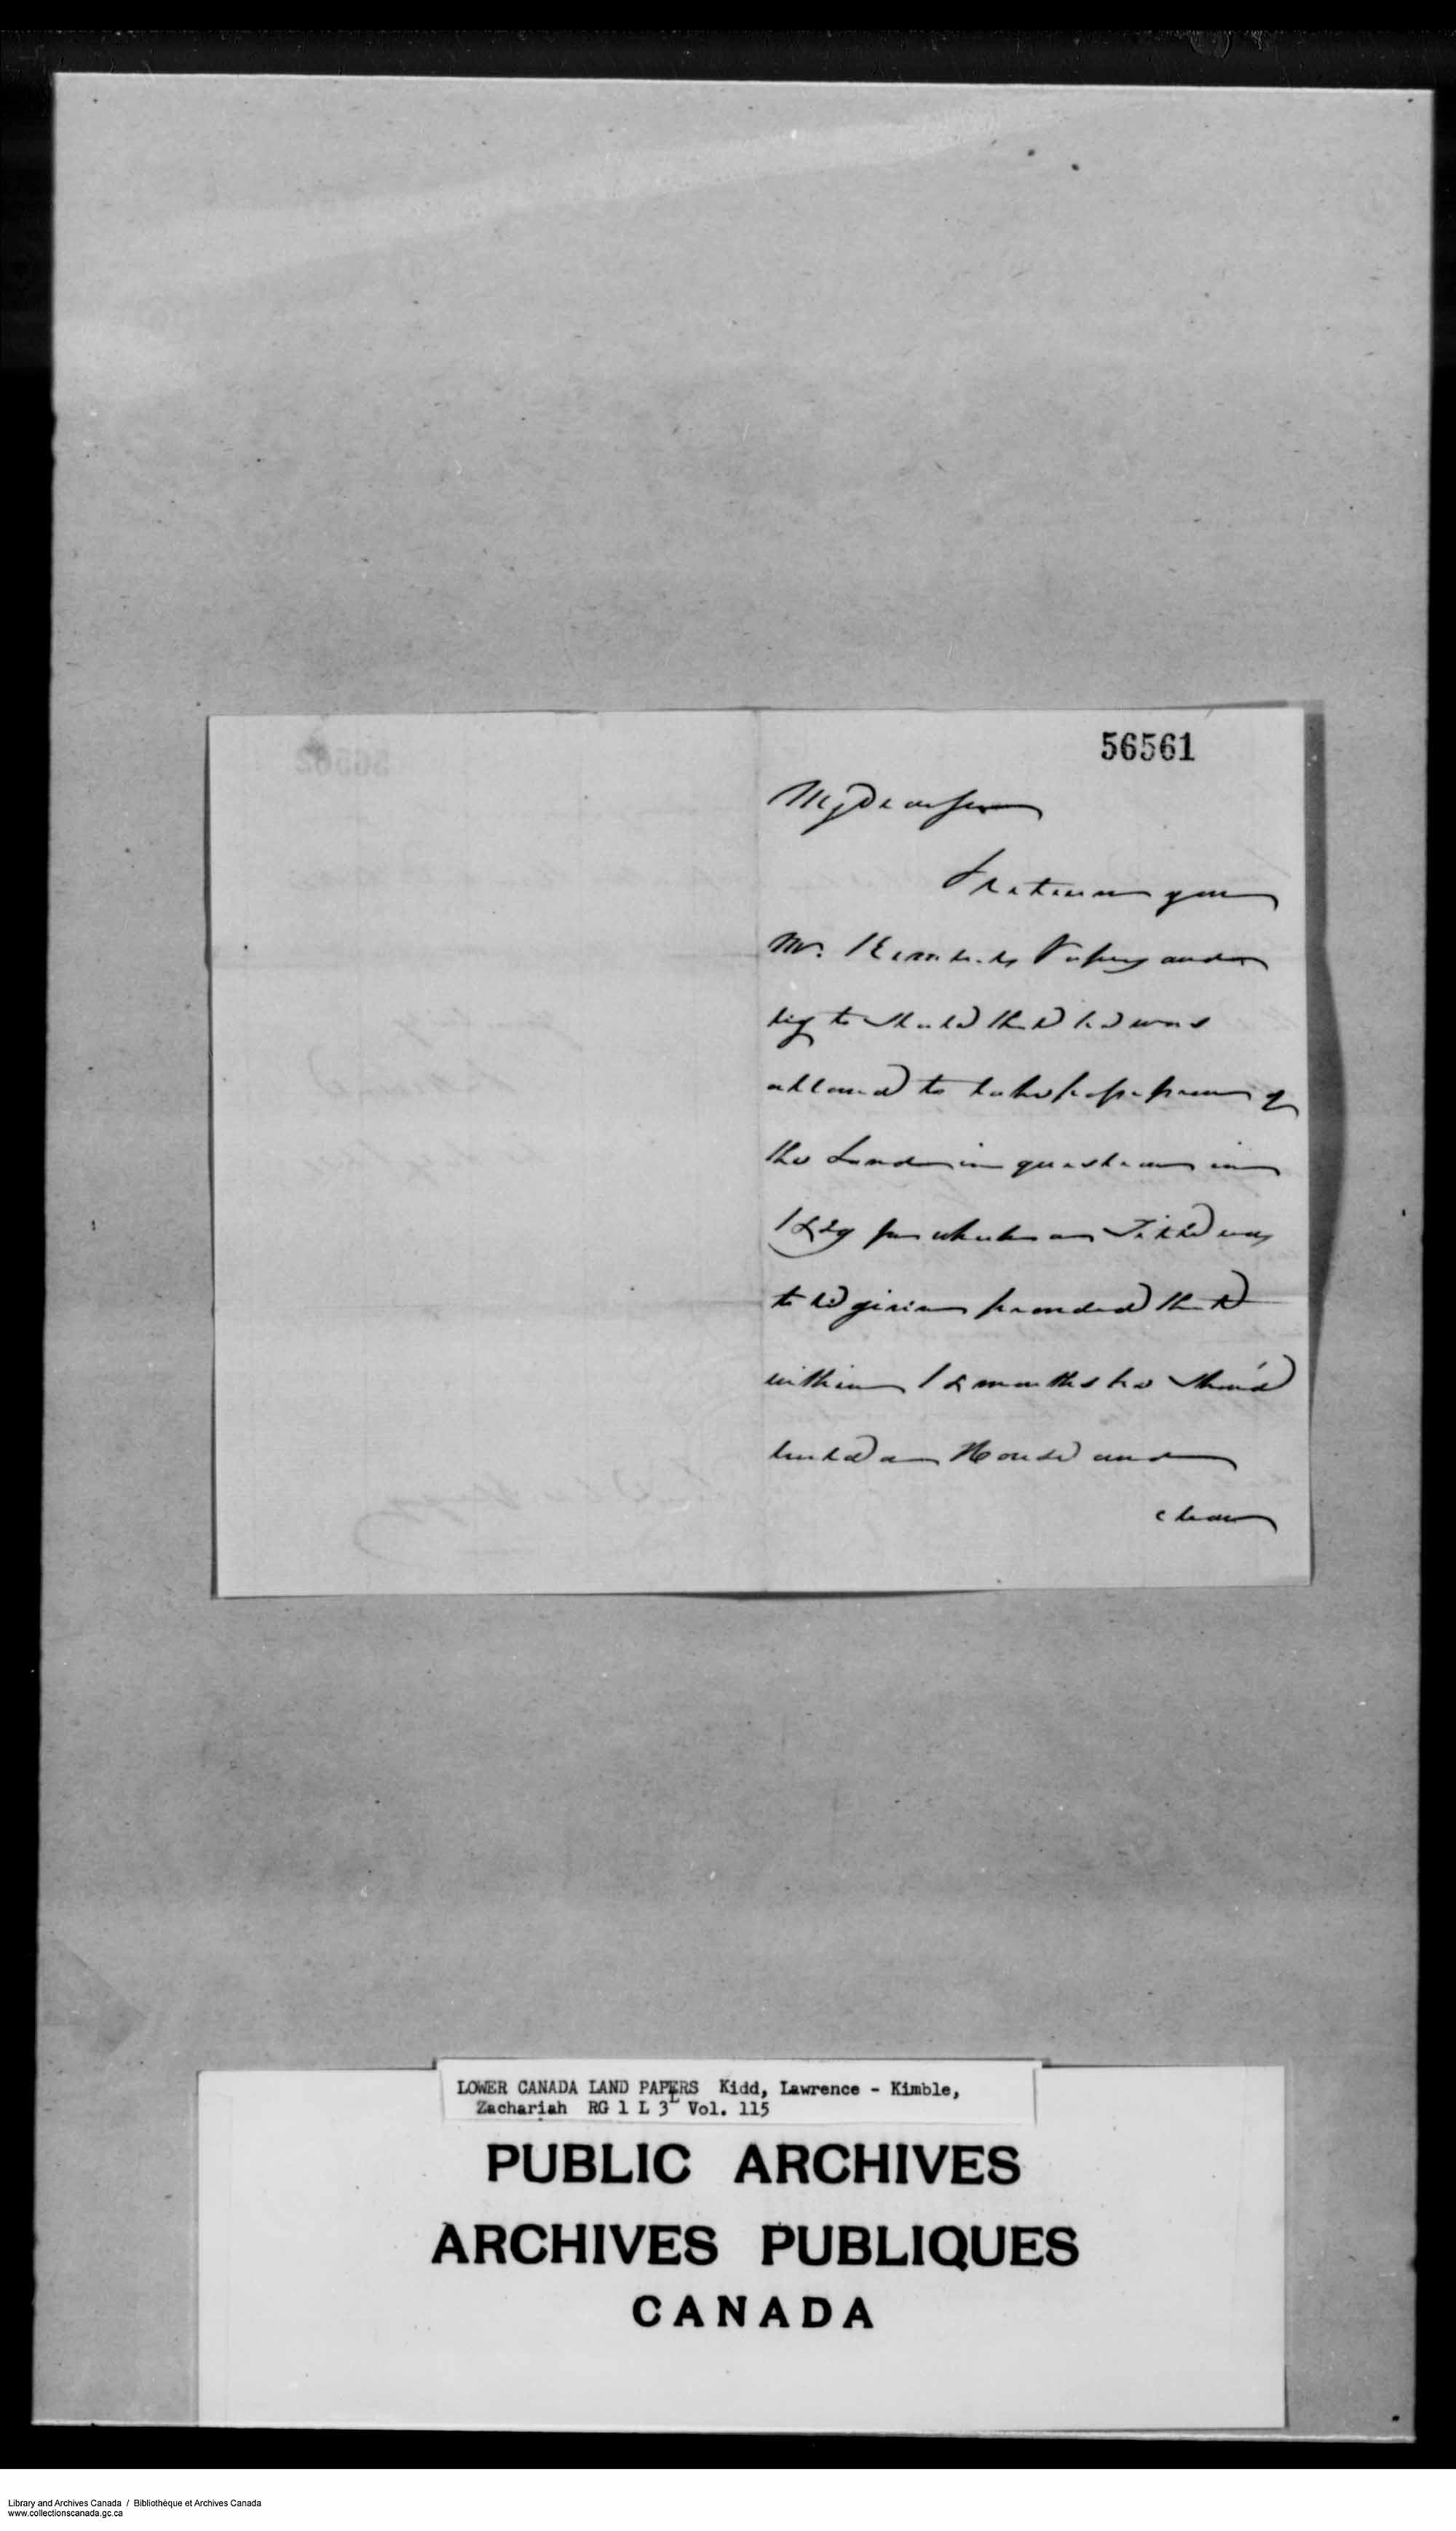 56561
My Dear Sir
I return you
Mr. Papers and
beg to state that he was
allowed to take possession of
the Land in question in
1829 for which a Title was
to be given provided that
within 12 months he should
build a House and
clear
LOWER CANADA LAND PAPERS Kidd, Lawrence - Kimble,
Zachariah RG 1 L 3L Vol. 115
PUBLIC ARCHIVES
ARCHIVES PUBLIQUES
CANADA
Library and Archives Canada / Bibliothèque et Archives Canada
www.collectionscanada.gc.ca